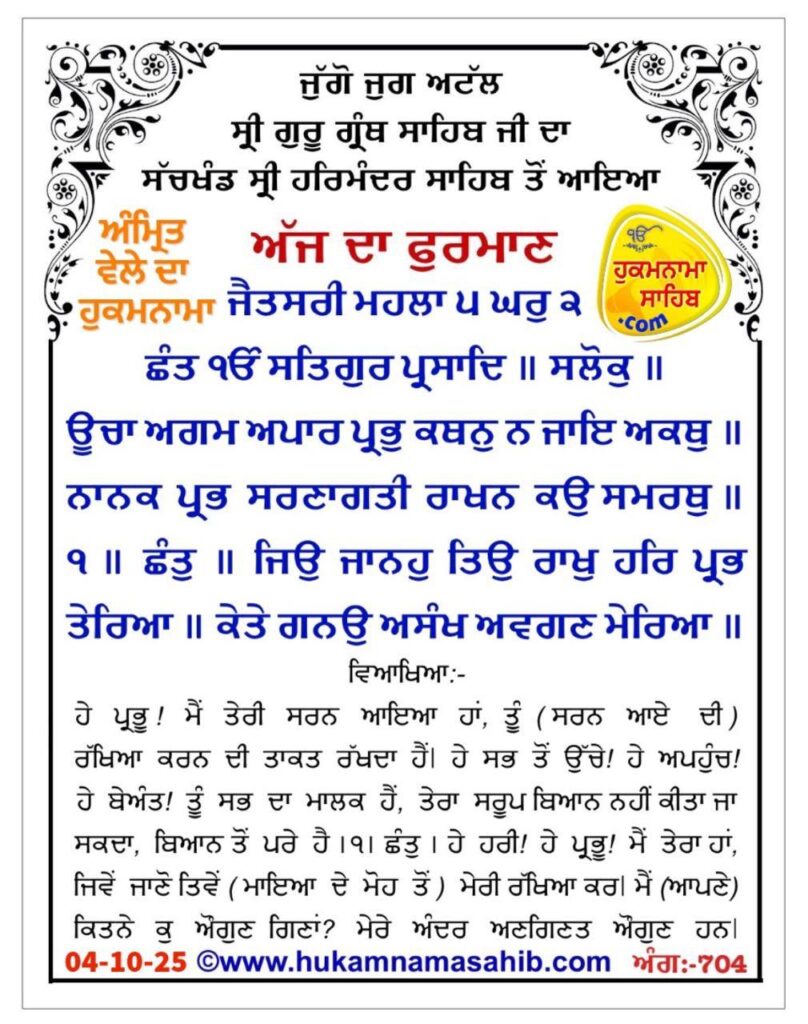 ਜੁੱਗੋ ਜੁਗ ਅਟੱਲ
ਸ੍ਰੀ ਗੁਰੂ ਗ੍ਰੰਥ ਸਾਹਿਬ ਜੀ ਦਾ
ਸੱਚਖੰਡ ਸ੍ਰੀ ਹਰਿਮੰਦਰ ਸਾਹਿਬ ਤੋਂ ਆਇਆ
ਅੰਮ੍ਰਿਤ
ਵੇਲੇ ਦਾ
ਹੁਕਮਨਾਮਾ
ਅੱਜ ਦਾ ਫੁਰਮਾਣ
ੴ
ਹੁਕਮਨਾਮਾ
ਸਾਹਿਬ
.com
ਜੈਤਸਰੀ ਮਹਲਾ ੫ ਘਰੁ ੨
ਛੰਤ ੴ ਸਤਿਗੁਰ ਪ੍ਰਸਾਦਿ ॥ ਸਲੋਕੁ ॥
ਊਚਾ ਅਗਮ ਅਪਾਰ ਪ੍ਰਭੁ ਕਥਨੁ ਨ ਜਾਇ ਅਕਥੁ ॥
ਨਾਨਕ ਪ੍ਰਭ ਸਰਣਾਗਤੀ ਰਾਖਨ ਕਉ ਸਮਰਥੁ ॥
੧ ॥ ਛੰਤੁ ॥ ਜਿਉ ਜਾਨਹੁ ਤਿਉ ਰਾਖੁ ਹਰਿ ਪ੍ਰਭ
ਤੇਰਿਆ ॥ ਕੇਤੇ ਗਨਉ ਅਸੰਖ ਅਵਗਣ ਮੇਰਿਆ ॥
ਵਿਆਖਿਆ:-
ਹੇ ਪ੍ਰਭੂ! ਮੈਂ ਤੇਰੀ ਸਰਨ ਆਇਆ ਹਾਂ, ਤੂੰ (ਸਰਨ ਆਏ ਦੀ)
ਰੱਖਿਆ ਕਰਨ ਦੀ ਤਾਕਤ ਰੱਖਦਾ ਹੈਂ। ਹੇ ਸਭ ਤੋਂ ਉੱਚੇ! ਹੇ ਅਪਹੁੰਚ!
ਹੇ ਬੇਅੰਤ! ਤੂੰ ਸਭ ਦਾ ਮਾਲਕ ਹੈਂ, ਤੇਰਾ ਸਰੂਪ ਬਿਆਨ ਨਹੀਂ ਕੀਤਾ ਜਾ
ਸਕਦਾ, ਬਿਆਨ ਤੋਂ ਪਰੇ ਹੈ ।੧। ਛੰਤੁ । ਹੇ ਹਰੀ! ਹੇ ਪ੍ਰਭੂ! ਮੈਂ ਤੇਰਾ ਹਾਂ,
ਜਿਵੇਂ ਜਾਣੋ ਤਿਵੇਂ (ਮਾਇਆ ਦੇ ਮੋਹ ਤੋਂ) ਮੇਰੀ ਰੱਖਿਆ ਕਰ। ਮੈਂ (ਆਪਣੇ)
ਕਿਤਨੇ ਕੁ ਔਗੁਣ ਗਿਣਾਂ? ਮੇਰੇ ਅੰਦਰ ਅਣਗਿਣਤ ਔਗੁਣ ਹਨ।
04-10-25 ©www.hukamnamasahib.com ਅੰਗ:-704